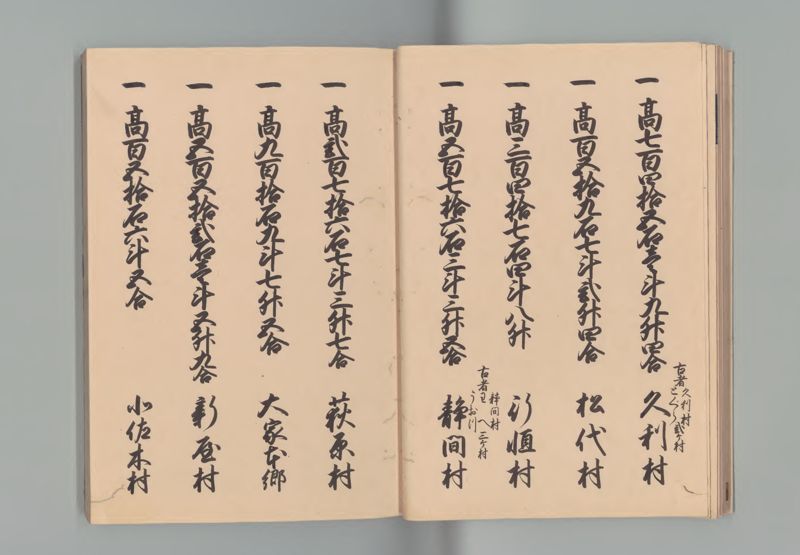 一 高七百四拾五石壱斗九升四合 久利村
古者久利村
弐ケ村
一 高百五拾九石七斗弐升四合 松代村
一 高三百四拾七石四斗八升 行恒村
一 高五百七拾六石三斗三升五合 静間村
古者
静間村
三ケ村
一 高弐百七拾六石七斗三升七合 萩原村
一 高九百拾石九斗七升五合 大家本郷
一 高五百五拾弐石壱斗五升九合 新屋村
一 高百五拾石六斗五合 小佐木村